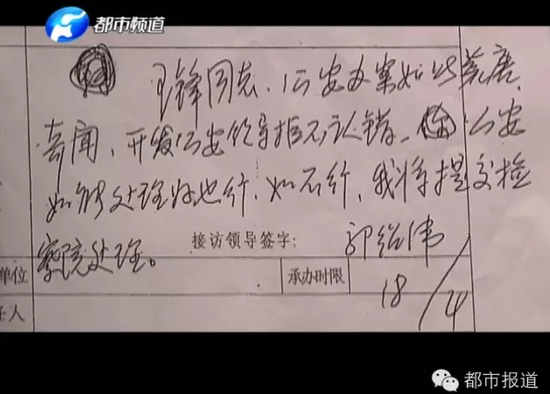 都市频道
王锋同志、公安办案如此荒唐、
奇闻、开发公安领导拒不认错、公安
如能处理好也行、如不行、我将提交检
察院处理。
接访领导签字:
单位 承办时限 18/4
任人
都市报道